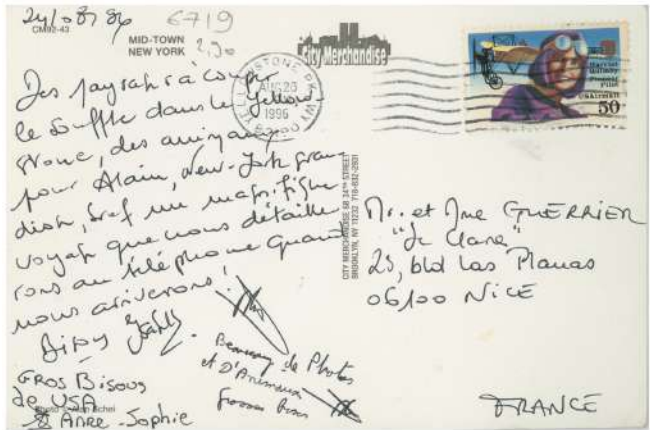 24/08/96
6719
CM92-43
MID-TOWN
NEW YORK
2,90
City Merchandise
YELLOWSTONE PK WY
AUG 26
1996
82190
Harriet
Quimby
Pioneer
Pilot
USAirmail
50
Des paysages à couper
le souffle dans le Yellow
stone, des
pour Alain, New-York gran
diose, bref un magnifique
voyage que nous détaille
rons au téléphone quand
nous arriverons!
Bisous
GROS BISOUS
de USA
Anne-Sophie
Beaucoup de Photos
et D'Animaux
Grosses bises
CITY MERCHANDISE 68 34TH STREET
BROOKLYN, NY 11232 718-832-2931
Mr. et Mme GUERRIER
25, bld Las Planas
06100 NICE
FRANCE